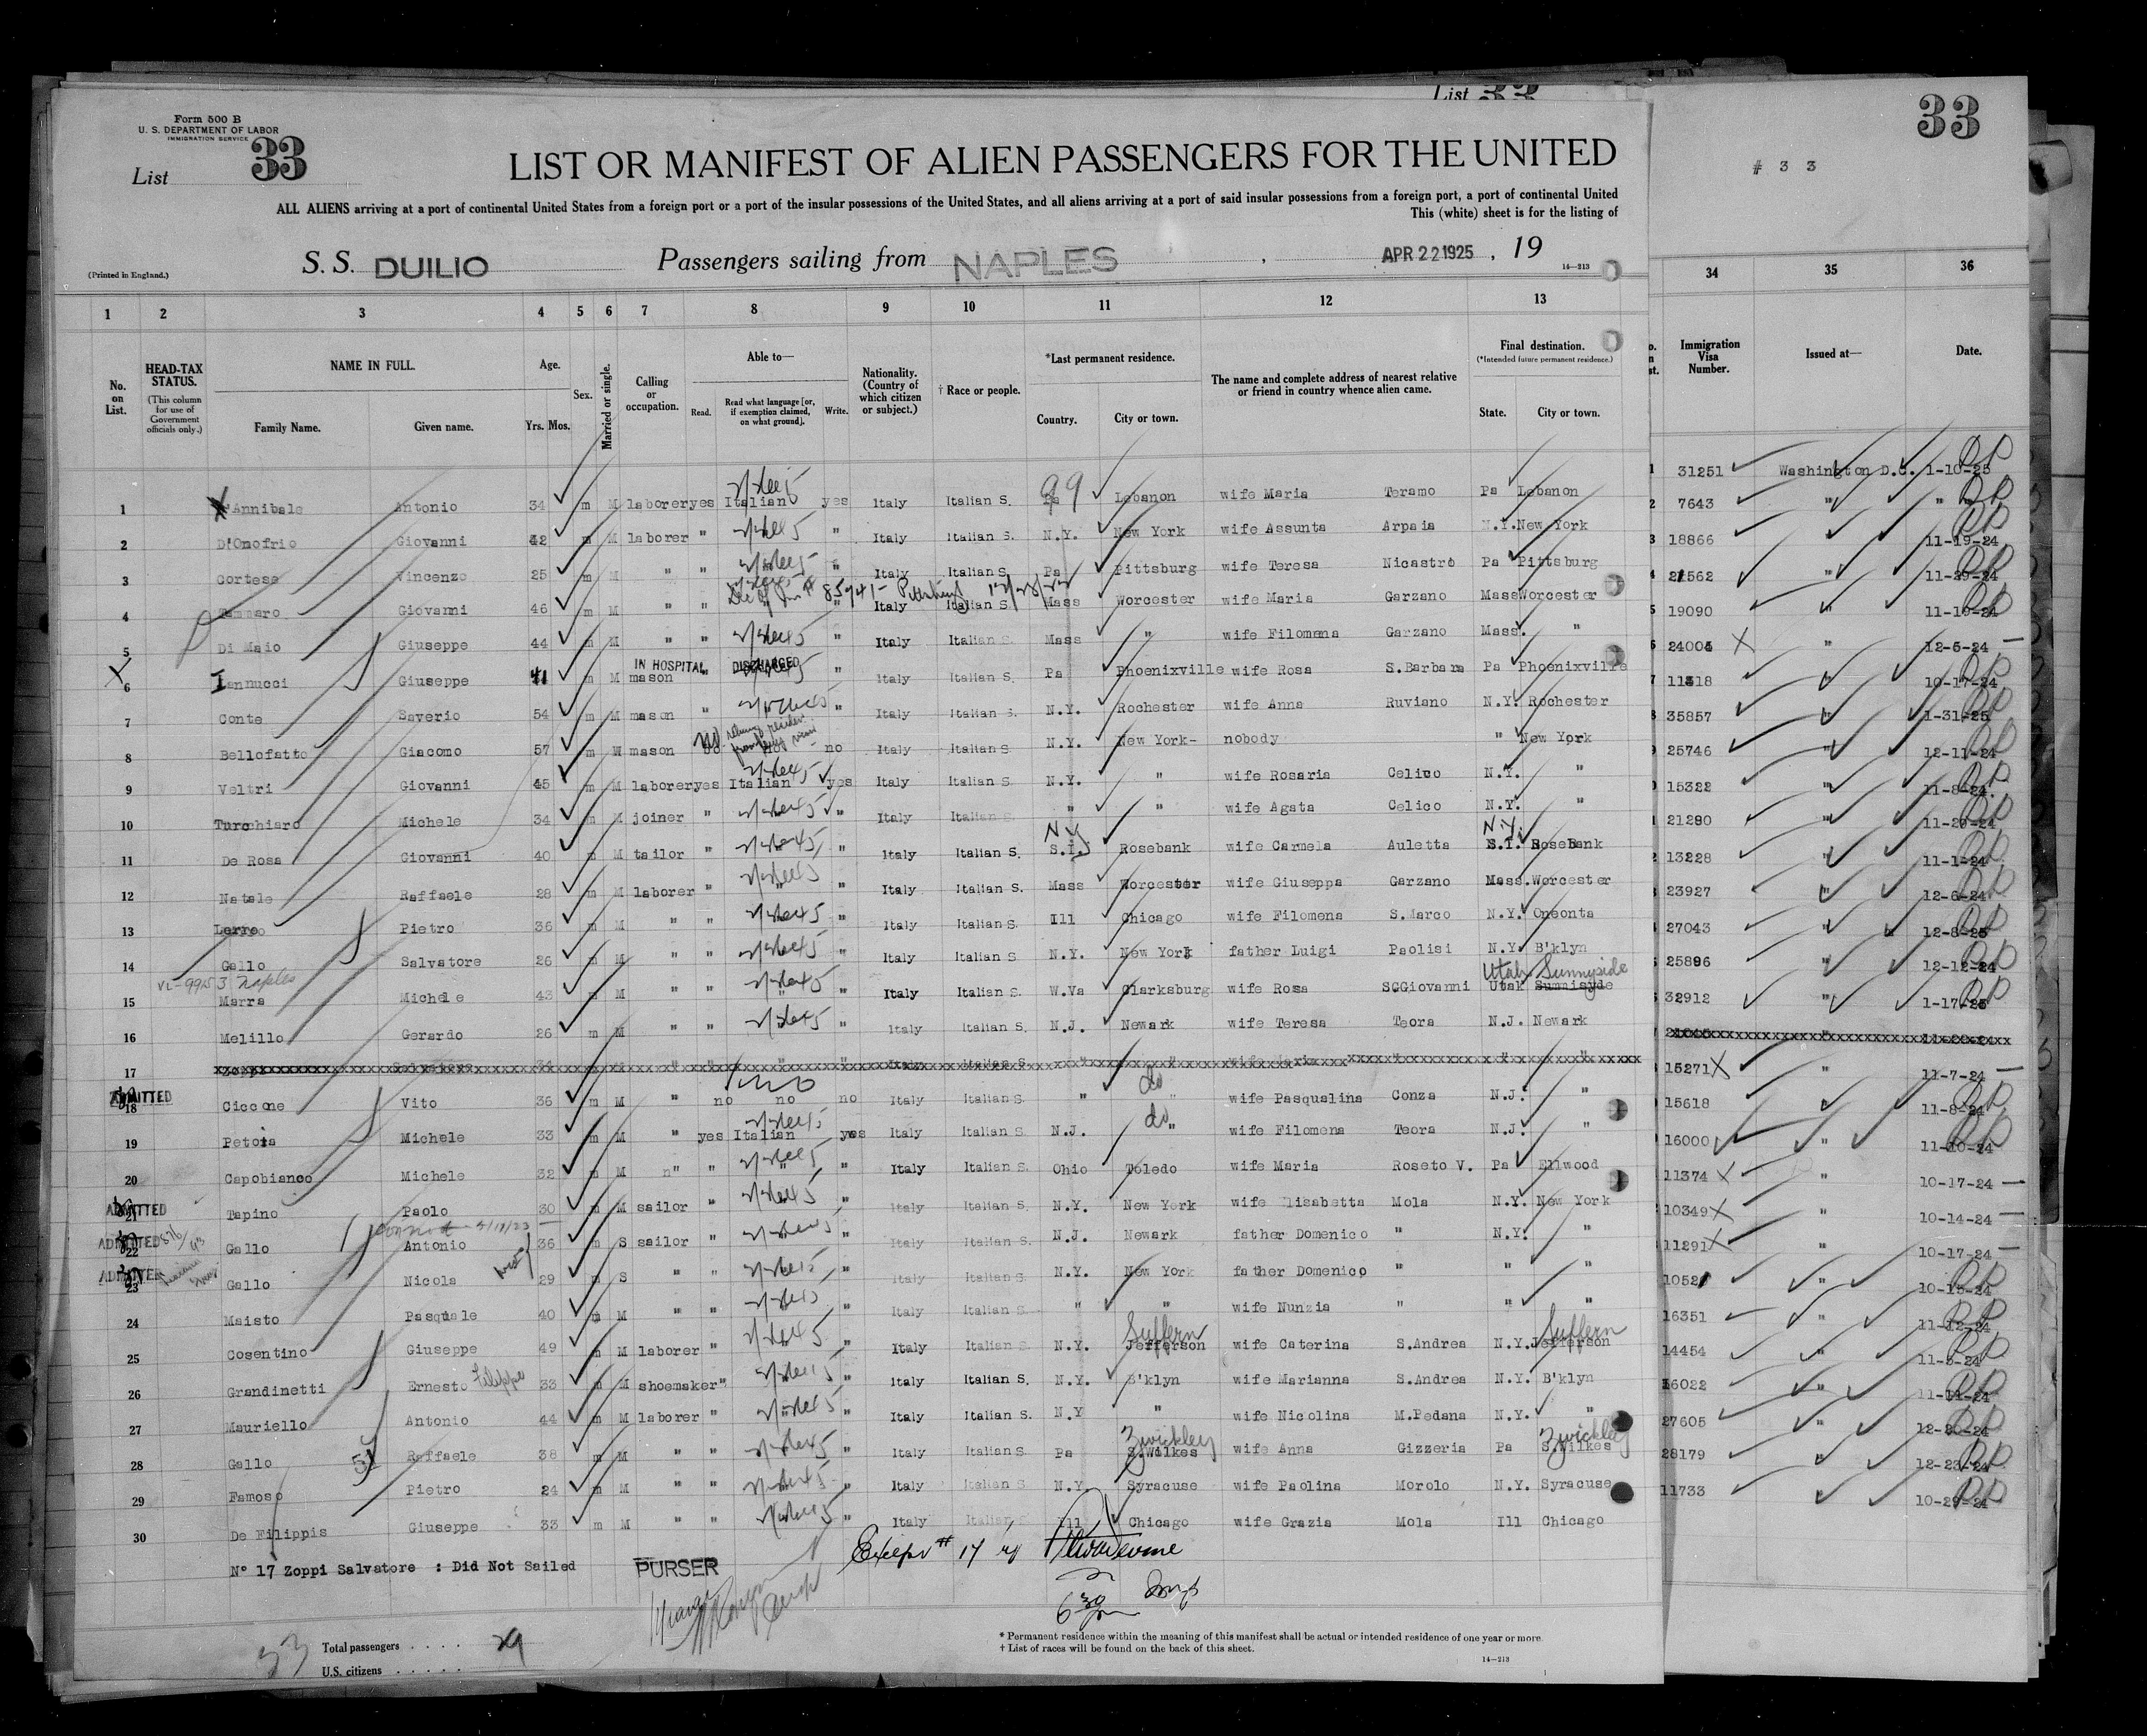 List 33
Form 500 B
U. S. DEPARTMENT OF LABOR
IMMIGRATION SERVICE
List 33
33
# 3 3
LIST OR MANIFEST OF ALIEN PASSENGERS FOR THE UNITED
ALL ALIENS arriving at a port of continental United States from a foreign port or a port of the insular possessions of the United States, and all aliens arriving at a port of said insular possessions from a foreign port, a port of continental United
This (white) sheet is for the listing of
(Printed in England.)
S. S. DUILIO Passengers sailing from NAPLES, APR 22 1925, 19
14-213
1 2 3 4 5 6 7 8 9 10 11 12 13 34 35 36
No. on List.
HEAD-TAX STATUS.
(This column for use of Government officials only.)
NAME IN FULL.
Family Name. Given name.
Age.
Yrs. Mos.
Sex.
Married or single.
Calling or occupation.
Able to—
Read. Read what language [or, if exemption claimed, on what ground]. Write.
Nationality. (Country of which citizen or subject.)
† Race or people.
*Last permanent residence.
Country. City or town.
The name and complete address of nearest relative or friend in country whence alien came.
Final destination.
(*Intended future permanent residence.)
State. City or town.
Immigration Visa Number.
Issued at—
Date.
1 Annibale Antonio 34 m M laborer yes Italian yes Italy Italian S. Pa Lebanon wife Maria Teramo Pa Lebanon 31251 Washington D.C. 1-10-25
2 D'Onofrio Giovanni 42 m M laborer " " Italy Italian S. N.Y. New York wife Assunta Arpaia N.Y. New York 7643 " "
3 Cortese Vincenzo 25 m M " " " Italy Italian S. Pa Pittsburg wife Teresa Nicastro Pa Pittsburg 18866 11-19-24
4 Tammaro Giovanni 46 m M " " " Italy Italian S. Mass Worcester wife Maria Garzano Mass Worcester 21562 " 11-29-24
5 Di Maio Giuseppe 44 m M " " " Italy Italian S. Mass " wife Filomena Garzano Mass. " 19090 " 11-19-24
IN HOSPITAL DISCHARGED
6 Iannucci Giuseppe 41 m M mason " " Italy Italian S. Pa Phoenixville wife Rosa S.Barbara Pa Phoenixville 24004 " 12-5-24
7 Conte Saverio 54 m M mason " " Italy Italian S. N.Y. Rochester wife Anna Ruviano N.Y. Rochester 11318 " 10-17-24
8 Bellofatto Giacomo 57 m M mason no no Italy Italian S. N.Y. New York- nobody " New York 35857 " 1-31-25
9 Veltri Giovanni 45 m M laborer yes Italian yes Italy Italian S. N.Y. " wife Rosaria Celico N.Y. " 25746 " 12-11-24
10 Turchiaro Michele 34 m M joiner " " Italy Italian S. " " wife Agata Celico N.Y. " 15322 " 11-8-24
11 De Rosa Giovanni 40 m M tailor " " Italy Italian S. N.Y. S.I. Rosebank wife Carmela Auletta N.Y. S.I. Rosebank 21280 " 11-29-24
12 Natale Raffaele 28 m M laborer " " Italy Italian S. Mass Worcester wife Giuseppa Garzano Mass. Worcester 13228 " 11-1-24
13 Lerro Pietro 36 m M " " " Italy Italian S. Ill Chicago wife Filomena S.Marco N.Y. Oneonta 23927 " 12-6-24
14 Gallo Salvatore 26 m M " " " Italy Italian S. N.Y. New York father Luigi Paolisi N.Y. B'klyn 27043 " 12-8-25
Naples
Utah Sunnyside
15 Marra Michele 43 m M " " " Italy Italian S. W.Va Clarksburg wife Rosa SGGiovanni Utah Sunnisyde 25896 " 12-12-24
16 Melillo Gerardo 26 m M " " " Italy Italian S. N.J. Newark wife Teresa Teora N.J. Newark 32912 " 1-17-25
17 Zoppi Salvatore 34 M " " " " Italy Italian S. " " wife Maria " "
ADMITTED
18 Ciccone Vito 36 m M " no no no Italy Italian S. " do " wife Pasqualina Conza N.J. " 15271 " 11-7-24
19 Petoia Michele 33 m M " yes Italian yes Italy Italian S. N.J. do " wife Filomena Teora N.J. " 15618 " 11-8-24
20 Capobianco Michele 32 m M " " " Italy Italian S. Ohio Toledo wife Maria Roseto V. Pa Ellwood 16000 " 11-10-24
ADMITTED
21 Tapino Paolo 30 m M sailor " " Italy Italian S. N.Y. New York wife lisabetta Mola N.Y. New York 11374 " 10-17-24
ADMITTED
22 Gallo Antonio 36 m S sailor " " Italy Italian S. N.J. Newark father Domenico " N.Y. " 10349 " 10-14-24
ADMITTED
23 Gallo Nicola 29 m S " " " Italy Italian S. N.Y. New York father Domenico " " " 11291 " 10-17-24
24 Maisto Pasquale 40 m M " " " Italy Italian S. " " wife Nunzia " " " 10521 " 10-15-24
25 Cosentino Giuseppe 49 m M laborer " " Italy Italian S. N.Y. Suffern Jefferson wife Caterina S.Andrea N.Y. Suffern Jefferson 16351 " 11-12-24
26 Grandinetti Ernesto Filippo 33 m M shoemaker " " Italy Italian S. N.Y. B'klyn wife Marianna S.Andrea N.Y. B'klyn 14454 " 11-5-24
27 Mauriello Antonio 44 m M laborer " " Italy Italian S. N.Y " wife Nicolina M.Pedana N.Y. " 16022 " 11-11-24
28 Gallo Raffaele 38 m M " " " Italy Italian S. Pa Zwickley S.Wilkes wife Anna Gizzeria Pa Zwickley S.Wilkes 27605 "
29 Famoso Pietro 24 m M " " " Italy Italian S. N.Y. Syracuse wife Paolina Morolo N.Y. Syracuse 28179 " 12-23-24
30 De Filippis Giuseppe 33 m M " " " Italy Italian S. Ill Chicago wife Grazia Mola Ill Chicago 11733 " 10-29-24
N° 17 Zoppi Salvatore : Did Not Sailed
PURSER
Except # 17
6 30 pm
Total passengers . . . . 29
U.S. citizens . . . . .
* Permanent residence within the meaning of this manifest shall be actual or intended residence of one year or more.
† List of races will be found on the back of this sheet.
14-213